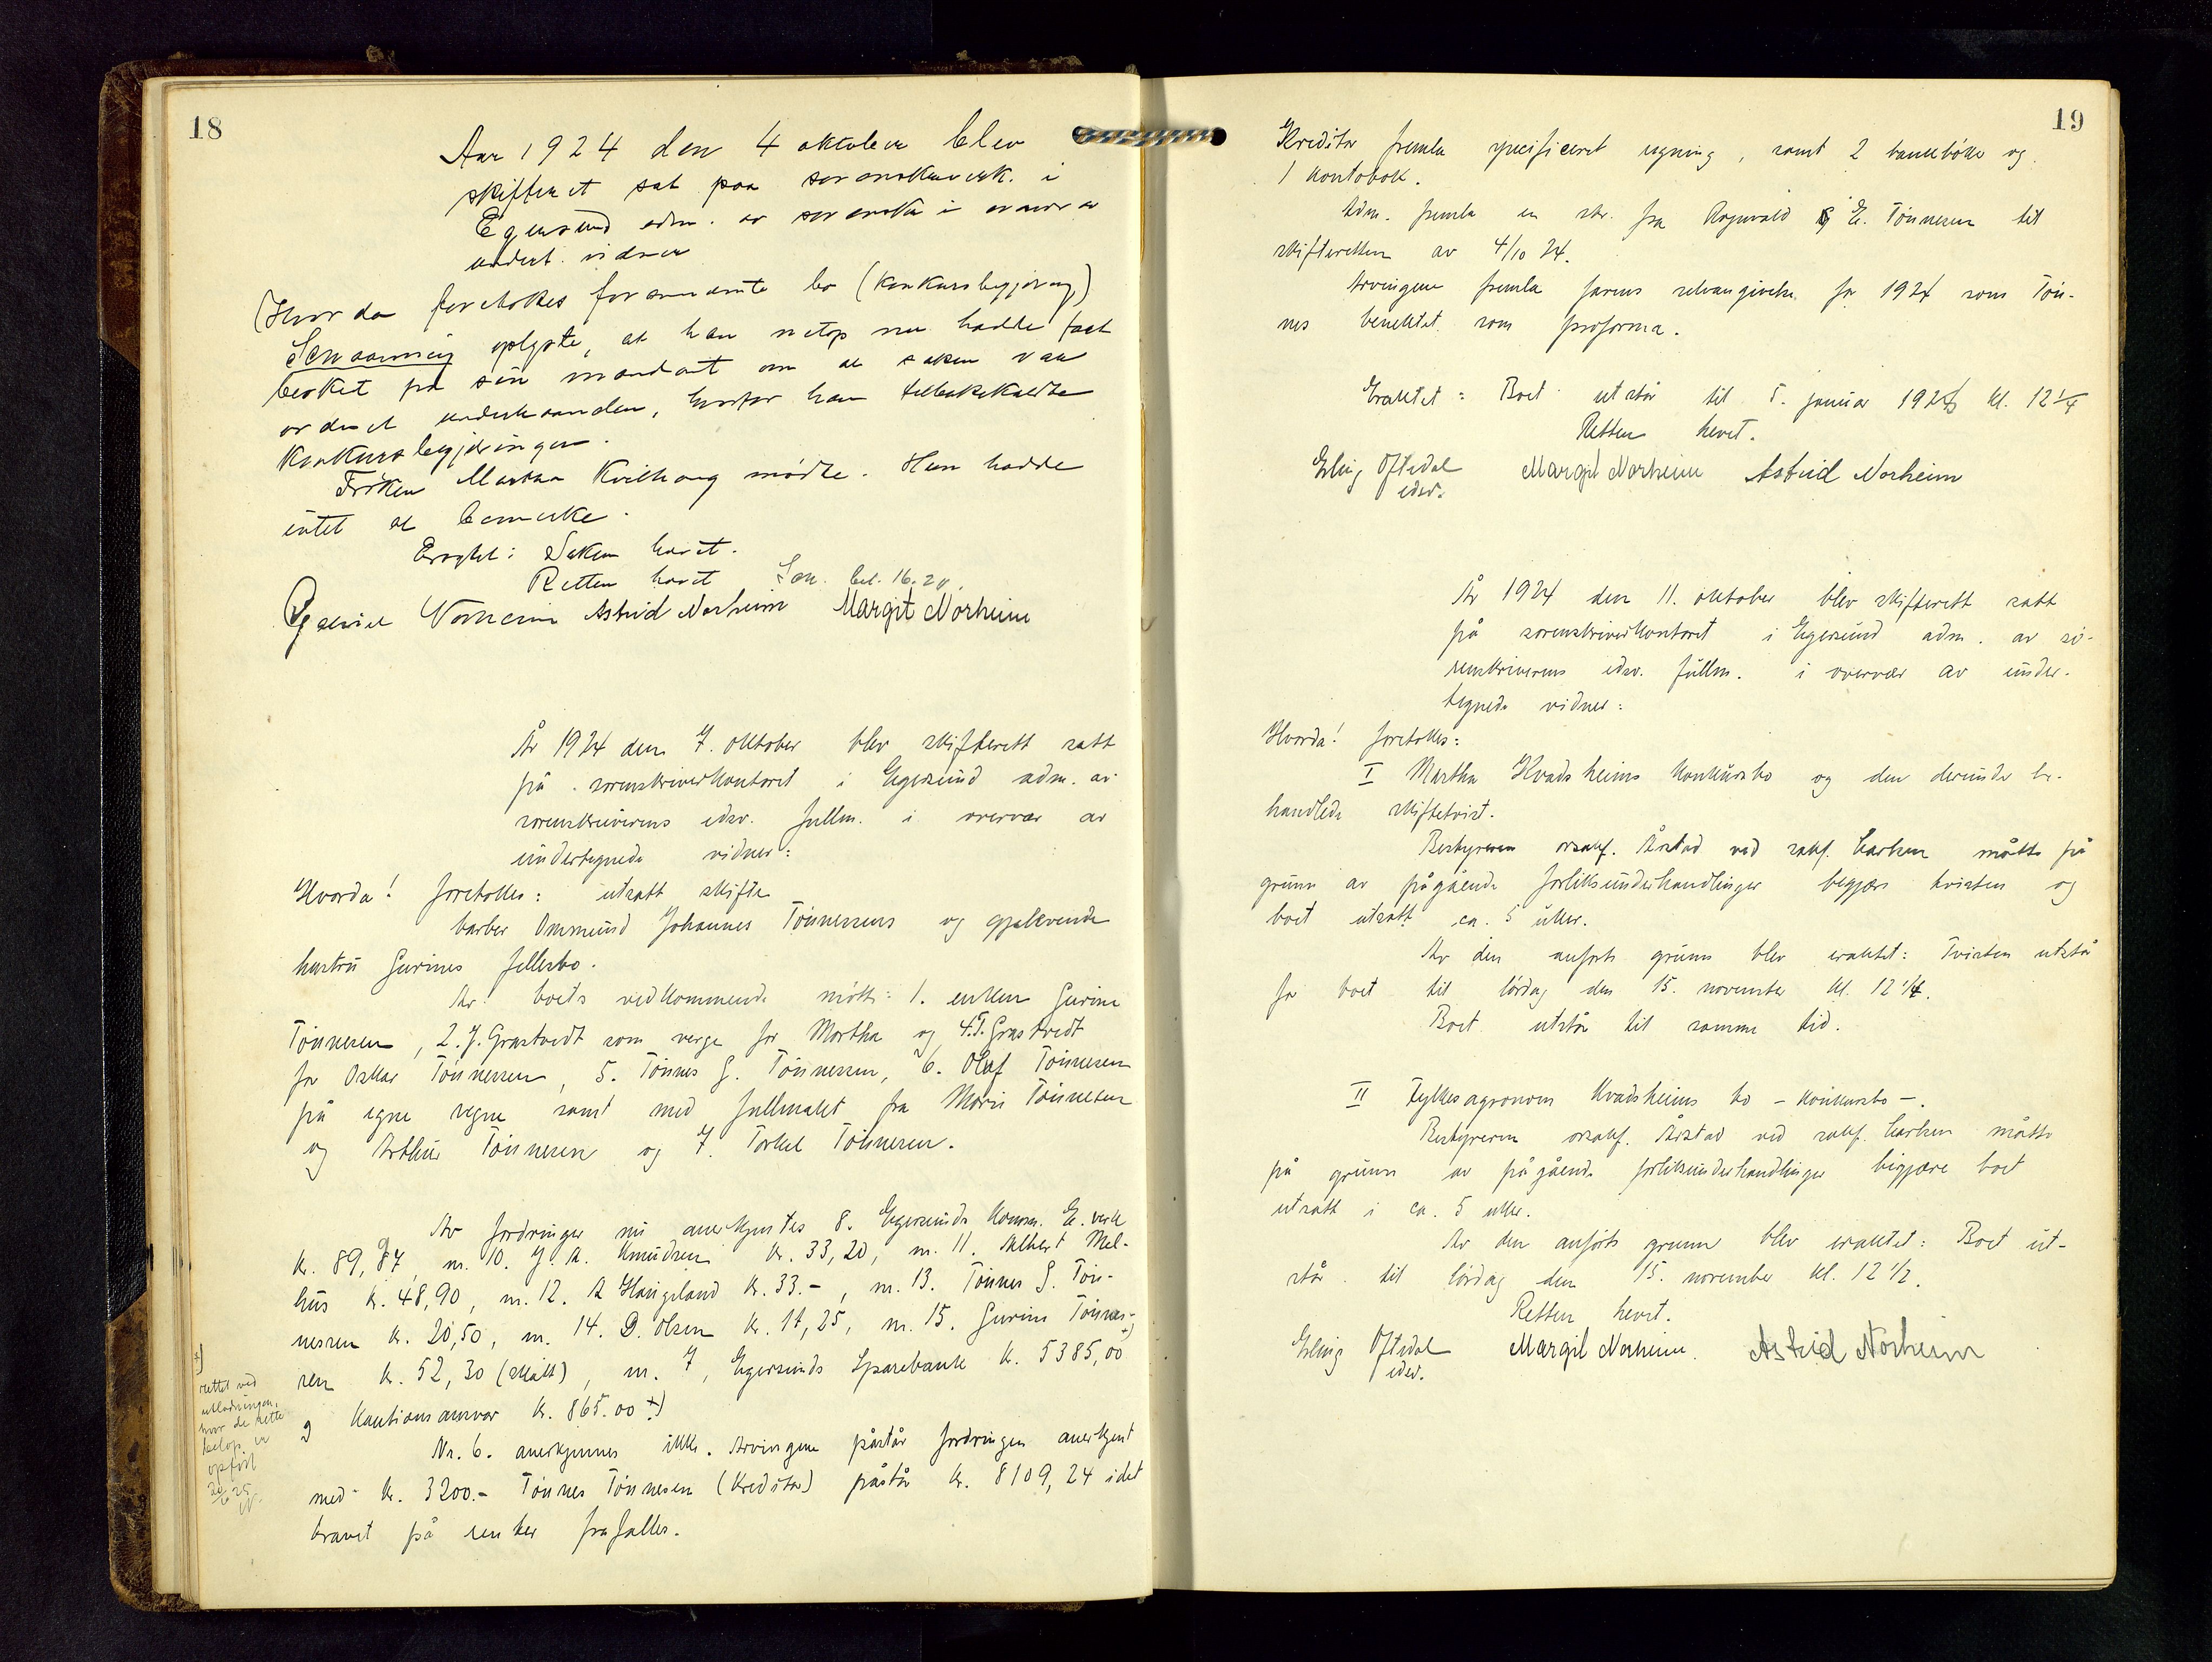 18
Aar 1924 den 4 oktober blev
skifteret sat paa sorenskriverk. i
Egersund adm. av sorenskr i overvær av
undert. vidner
Hvorda foretokes forannevnte bo (konkursbegjæring)
Schaanning oplyste, at han netop nu hadde faat
besked fra sin mandant om at saken var
ordnet underhaanden, hvorfor han tilbakekaldte
konkursbegjæringen.
Frøken Martha Kvilhaug mødte. Hun hadde
intet at bemerke.
Eragtet: Saken hævet.
Retten hævet
Norheim Astrid Norheim Margit Norheim
År 1924 den 7. oktober blev skifterett satt
på sorenskriverkontoret i Egersund adm. av
sorenskriverens edsv. fullm. i overvær av
undertegnede vidner:
Hvorda! foretokes: utsatt skifte
barber Ommund Johannes Tönnessens og gjenlevende
hustru Gurines fellesbo.
Av boets vedkommende møtte: 1. enken Gurine
Tönnesen, 2. J. Grastvedt som verge for Martha og 4. T. Grastvedt
for Oskar Tönnessen, 5. Tönnes G. Tönnessen, 6. Olaf Tönnesen
på egne vegne samt med fullmakt fra Marie Tönnesen
og Arthur Tönnesen og 7. Torkel Tönnesen.
Av fordringer nu anerkjentes 8. Egersunds komm. E. verk
kr. 89,87, nr. 10. J. A. Knudsen kr. 33,20, nr. 11. Albert Mel-
hus kr. 48,90, nr. 12. A Haugland kr. 33.-, nr. 13. Tönnes G. Tön-
nessen kr. 20,50, nr. 14. D. Olsen kr. 17,25, nr. 15. Gurine Tönnes-
sen kr. 52,30 (skatt), nr. 7, Egersunds Sparebank kr. 5385,00 +)
og kautionsansvar kr. 865.00 +)
Nr. 6. anerkjennes ikke. Arvingene påstår fordringen anerkjent
med kr. 3200.- Tönnes Tönnesen (kreditor) påstår kr. 8109,24 idet
kravet på renter frafalles.
+)
rettet ved
utlodningen,
hvor de rette
belöp er
opfört
20/6 25
19
Kreditor fremla specificeret regning, samt 2 bankbøker og
1 kontobok.
Adm. fremla en skr. fra Ragnvald E. Tönnesen til
skifteretten av 4/10 24.
Arvingene fremla farens selvangivelse for 1924 som Tön-
nes benektet som proforma.
Eraktet: Boet utstår til 5. januar 1925 kl. 12 1/4
Retten hevet.
Erling Oftedal Margit Norheim Astrid Norheim
edsv.
År 1924 den 11. oktober blev skifterett satt
på sorenskriverkontoret i Egersund adm. av so-
renskriverens edsv. fullm. i overvær av under-
tegnede vidner:
Hvorda! foretokes:
I Martha Kvadsheims konkursbo og den derunder be-
handlede skiftetvist.
Bestyreren orsakf. Årstad ved sakf. Carlsen møtte på
grunn av pågående forliksunderhandlinger begjært tvisten og
boet utsatt ca. 5 uker.
Av den anførte grunn blev eraktet: Tvisten utstår
for boet til lördag den 15. november kl. 12 1/4.
Boet utstår til samme tid.
II Fylkesagronom Kvadsheims bo - konkursbo -.
Bestyreren orsakf. Årstad ved sakf. Carlsen møtte
på grunn av pågående forliksunderhandlinger begjære boet
utsatt i ca. 5 uker.
Av den anførte grunn blev eraktet: Boet ut-
står til lördag den 15. november kl. 12 1/2.
Retten hevet.
Erling Oftedal Margit Norheim. Astrid Norheim
edsv.